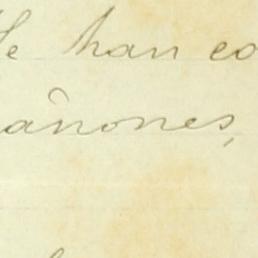 Se han co
añones,